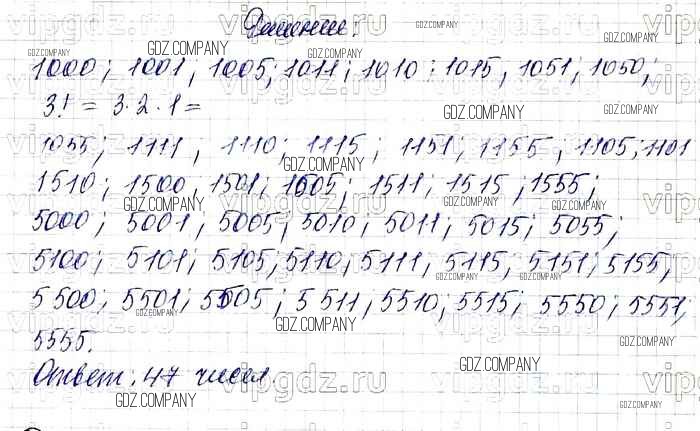 Решение:
1000; 1001; 1005; 1011; 1010; 1015; 1051; 1050;
3! = 3·2·1=
1055; 1111, 1110; 1115; 1151; 1155, 1105; 1101
1510; 1500, 1501; 1505; 1511; 1515; 1555;
5000; 5001; 5005; 5010; 5011; 5015; 5055;
5100; 5101; 5105; 5110; 5111, 5115; 5151; 5155,
5500; 5501; 5505; 5511, 5510; 5515; 5550; 5551,
5555.
Ответ: 47 чисел.
GDZ.COMPANY
vipgdz.ru